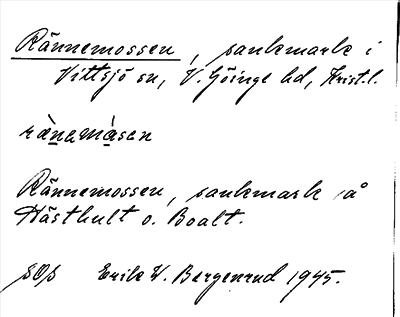 Rännemossen, sankmark i
Vittsjö sn, V. Göinge hd, Krist.l.
rànemàsen
Rännemossen, sankmark på
Hästhult o. Boalt.
SOS Erik W. Bergenrud 1945.